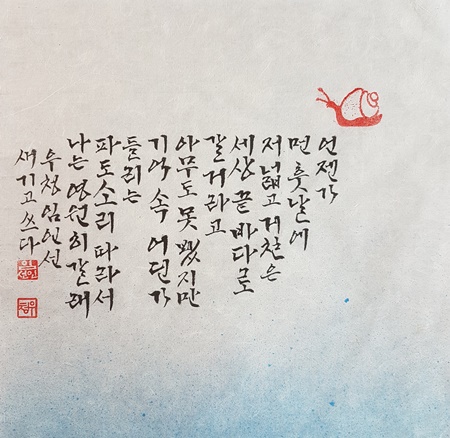 언젠가
먼 훗날에
저 넓고 거칠은
세상 끝 바다로
갈 거라고
아무도 못 봤지만
기억 속 어딘가
들리는
파도소리 따라서
나는 영원히 갈래
우정 임인선
새기고 쓰다